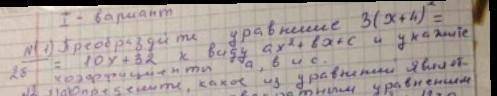 I - вариант
№1) Преобразуйте уравнение 3(x+4)²=
= 10x+32 к виду ax²+bx+c и укажите
28 коэффициенты a, b и c.
Определите, какое из уравнений являет-
квадратным уравнением